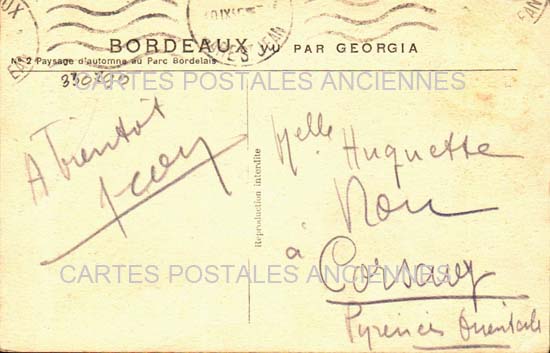 BORDEAUX vu PAR GEORGIA
Nº 2 Paysage d'automne au Parc Bordelais
330790
CARTES POSTALES ANCIENNES
A Bientôt
Reproduction interdite
Melle Huguette
à
Corsavy
Pyrénées Orientales
CARTES POSTALES ANCIENNES